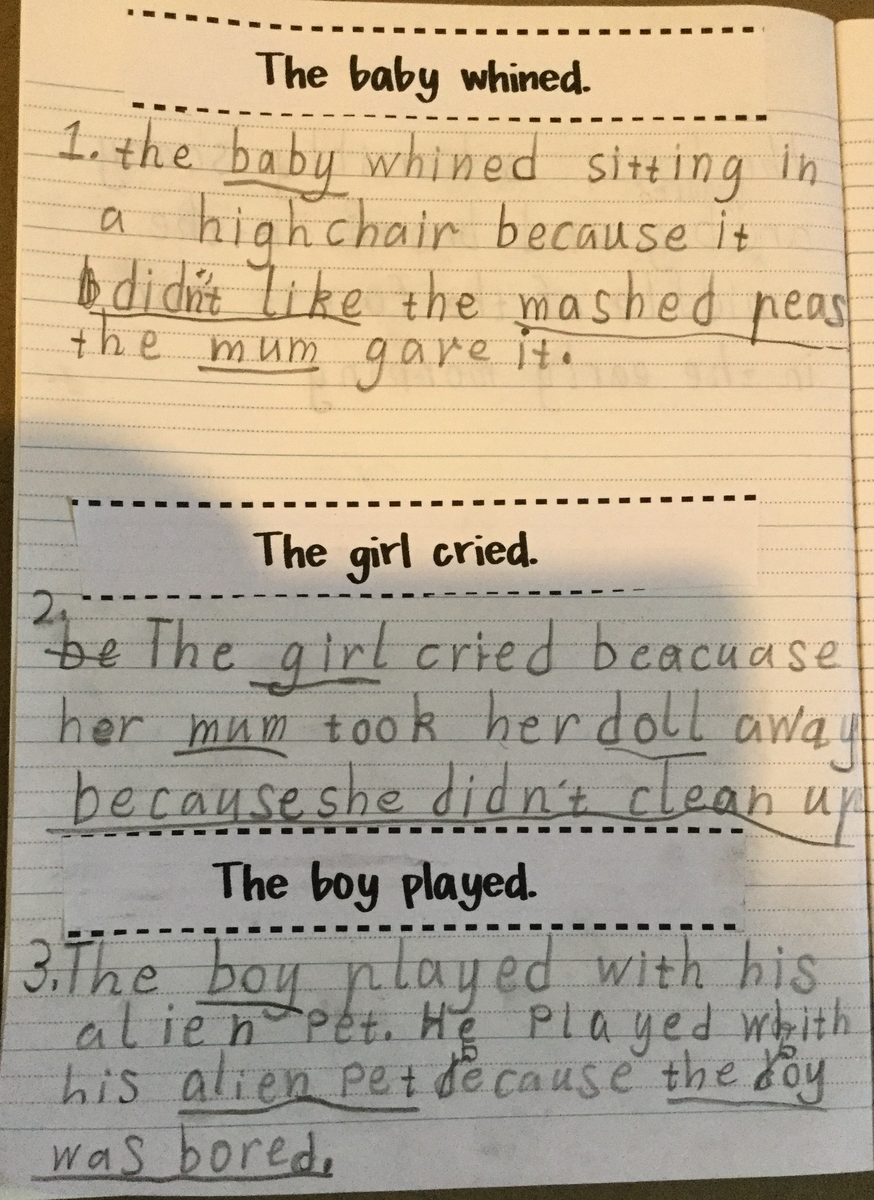 The baby whined.
1. the baby whined sitting in
a highchair because it
didn't like the mashed peas
the mum gave it.
The girl cried.
2.
be The girl cried beacuase
her mum took her doll away
because she didn't clean up
The boy played.
3. The boy played with his
alien Pet. He Played whith
his alien Pet because the boy
was bored.